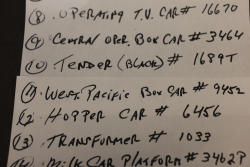 (8) . OPERATING T.V. CAR # 16670
(9) CENTRAL OPER. BOX CAR # 3464
(10) TENDER (BLACK) # 1689T
(11) WEST PACIFIC BOX CAR # 9452
12 HOPPER CAR # 6456
(13) TRANSFORMER # 1033
MILK CAR PLATFORM # 3462P